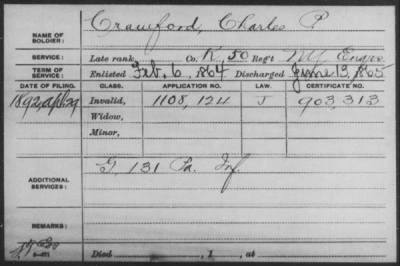 NAME OF SOLDIER: Crawford, Charles P
SERVICE: Late rank Co. K, 50 Reg't NY Engrs.
TERM OF SERVICE: Enlisted Feb. 6, 1864 Discharged June 13, 1865
DATE OF FILING. CLASS. APPLICATION NO. LAW. CERTIFICATE NO.
1892, Apl. 29 Invalid, 1108,124 J 903,313
Widow,
Minor,
ADDITIONAL SERVICES: G, 131 Pa. Inf.
REMARKS:
Died , 1 , at